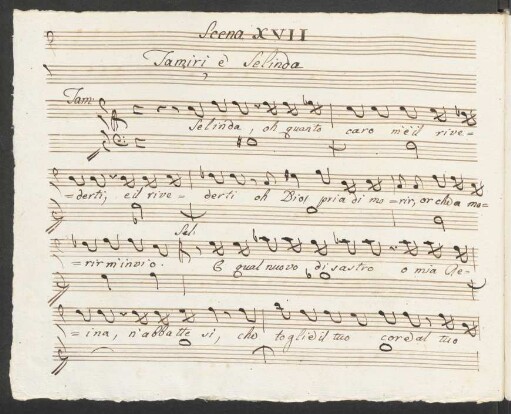 Scena XVII
Tamiri è Selinda
Tam:
Selinda, oh quanto caro m'è il rive=
=derti, e il rive=derti oh Dio! pria di mo=rir, or ch'è a mo=
Sel:
=rir m'invio. E qual nuovo disastro o mia Re=
=ina, n'abbatte si, che toglie il tuo core al tuo